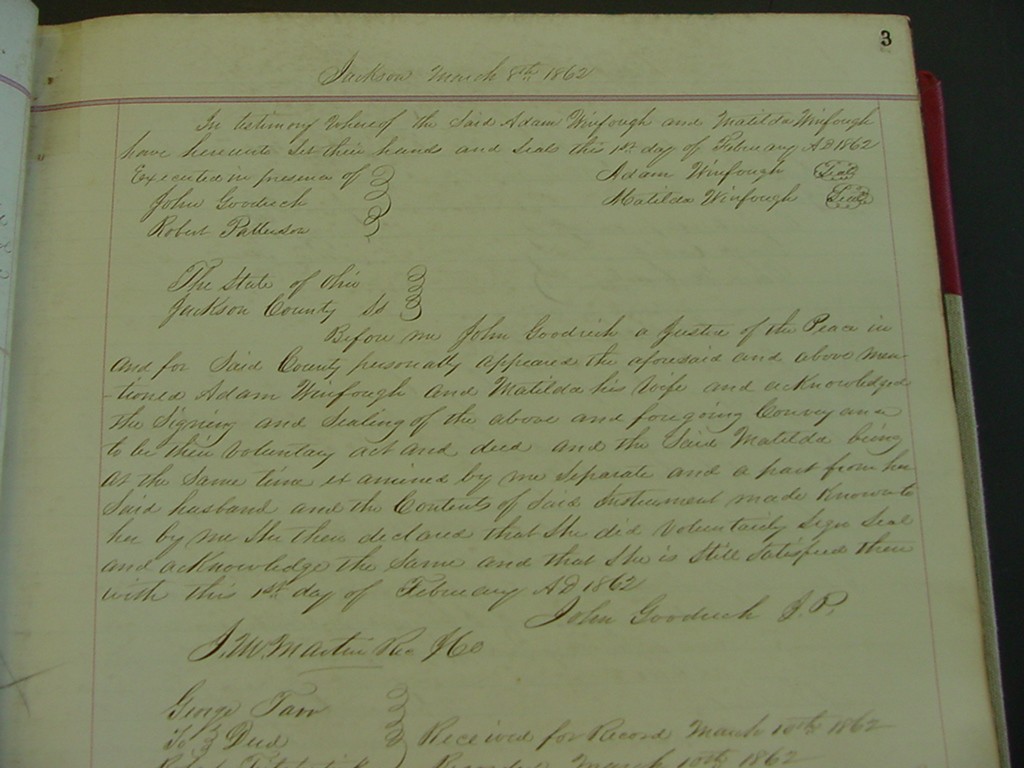 3
Jackson March 8th 1862
In testimony Whereof the Said Adam Winfough and Matilda Winfough
have hereunto Set their hands and Seals this 1st day of February AD 1862
Executed in presence of Adam Winfough Seal
John Goodrich Matilda Winfough Seal
Robert Patterson
The State of Ohio
Jackson County Ss
Before me John Goodrich a Justice of the Peace in
and for Said County personally appeared the aforesaid and above men-
-tioned Adam Winfough and Matilda his Wife and acknowledged
the Signing and Sealing of the above and foregoing Conveyance
to be their Voluntary act and deed and the Said Matilda being
at the Same time examined by me Separate and a part from her
Said husband and the Contents of Said Instrument made Known to
her by me She then declared that She did Voluntarily Sign Seal
and acknowledge the Same and that She is Still Satisfied there
with this 1st day of February AD 1862
John Goodrich J.P.
Martin Rec
George Tarr
To Deed Received for Record March 10th 1862
Recorded March 10th 1862